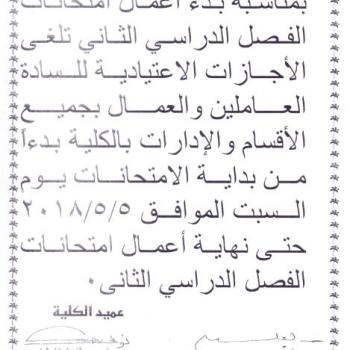 بمناسبة بدء أعمال امتحانات
الفصل الدراسي الثاني تلغى
الأجازات الاعتيادية للسادة
العاملين والعمال بجميع
الأقسام والإدارات بالكلية بدءاً
من بداية الامتحانات يوم
السبت الموافق ٢٠١٨/٥/٥
حتى نهاية أعمال امتحانات
الفصل الدراسي الثانى.
عميد الكلية